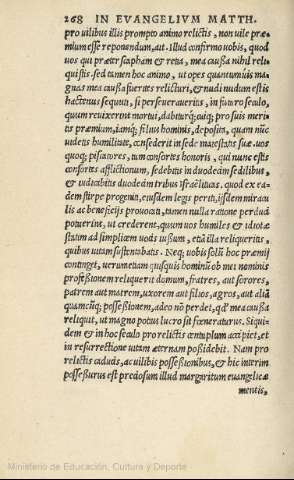 268 IN EVANGELIVM MATTH.
pro uilibus illis prompto animo relictis, non uile præ=
mium esse reponendum, ait. Illud confirmo uobis, quod
uos qui præter scapham & retia, mea causa nihil reli=
quistis. sed tamen hoc animo, ut opes quantumuis ma=
gnas mea causa fueratis relicturi, & nudi nudum estis
hactenus sequuti, si perseueraueritis, in futuro seculo,
quum reuixerint mortui, dabiturq́; cuiq; pro suis meri=
tis præmium, iamq́; filius hominis, deposita, quam nūc
uidetis humilitate, consederit in sede maiestatis suæ. uos
quoq; piscatores, tum consortes honoris, qui nunc estis
consortes afflictionum, sedebitis in duodecim sedilibus,
& iudicabitis duodecim tribus Israëliticas. quod ex ea=
dem stirpe progeniti, eiusdem legis periti, ijsdem miracu
lis ac beneficijs prouocati, tamen nulla ratione perduci
potuerint, ut crederent, quum uos humiles & idiotæ
statim ad simplicem uocis iussum, etiā illa reliqueritis,
quibus uitam sustentabatis. Neq; uobis solū hoc præmij
continget, uerumetiam quisquis hominū ob mei nominis
professionem reliquerit domum, fratres, aut sorores,
patrem aut matrem, uxorem aut filios, agros, aut aliā
quamcūq; possessionem, adeo nō perdet, qđ mea causa
reliquit, ut magno potius lucro sit fœneraturus. Siqui=
dem & in hoc seculo pro relictis centuplum accipiet, et
in resurrectione uitam æternam possidebit. Nam pro
relictis caducis, ac uilibus possessionibus, & hic interim
possessurus est preciosum illud margaritum euangelicæ
mentis,
Ministerio de Educación, Cultura y Deporte